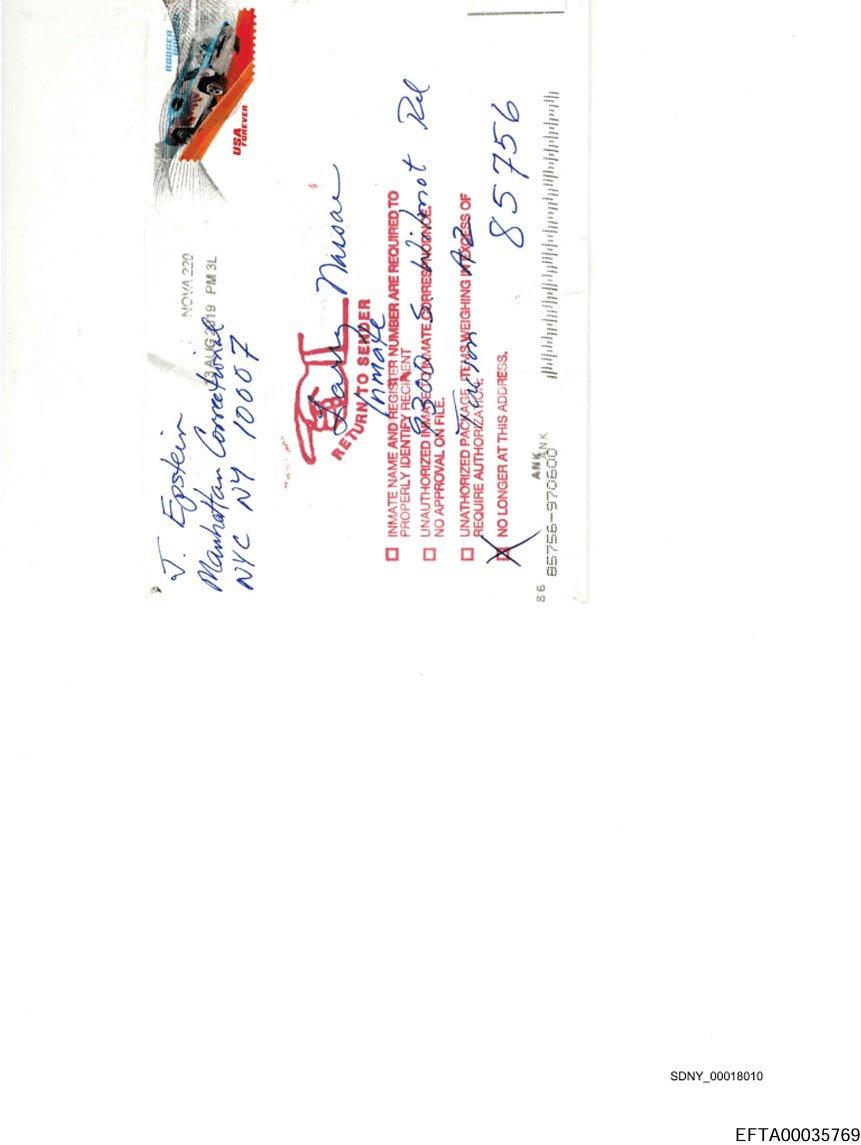 J. Epstein
Manhattan Correctional
NYC NY 10007
NOVA 220
13 AUG 2019 PM 3L
RODGER
USA
FOREVER
Larry Nassar
Inmate
9300 S. Wilmot Rd
Tucson AZ
85756
RETURN TO SENDER
☐ INMATE NAME AND REGISTER NUMBER ARE REQUIRED TO
PROPERLY IDENTIFY RECIPIENT
☐ UNAUTHORIZED INMATE TO INMATE CORRESPONDENCE.
NO APPROVAL ON FILE.
☐ UNATHORIZED PACKAGE. ITEMS WEIGHING IN EXCESS OF
REQUIRE AUTHORIZATION.
☒ NO LONGER AT THIS ADDRESS.
ANK
ANK
86 85756-970600
SDNY_00018010
EFTA00035769